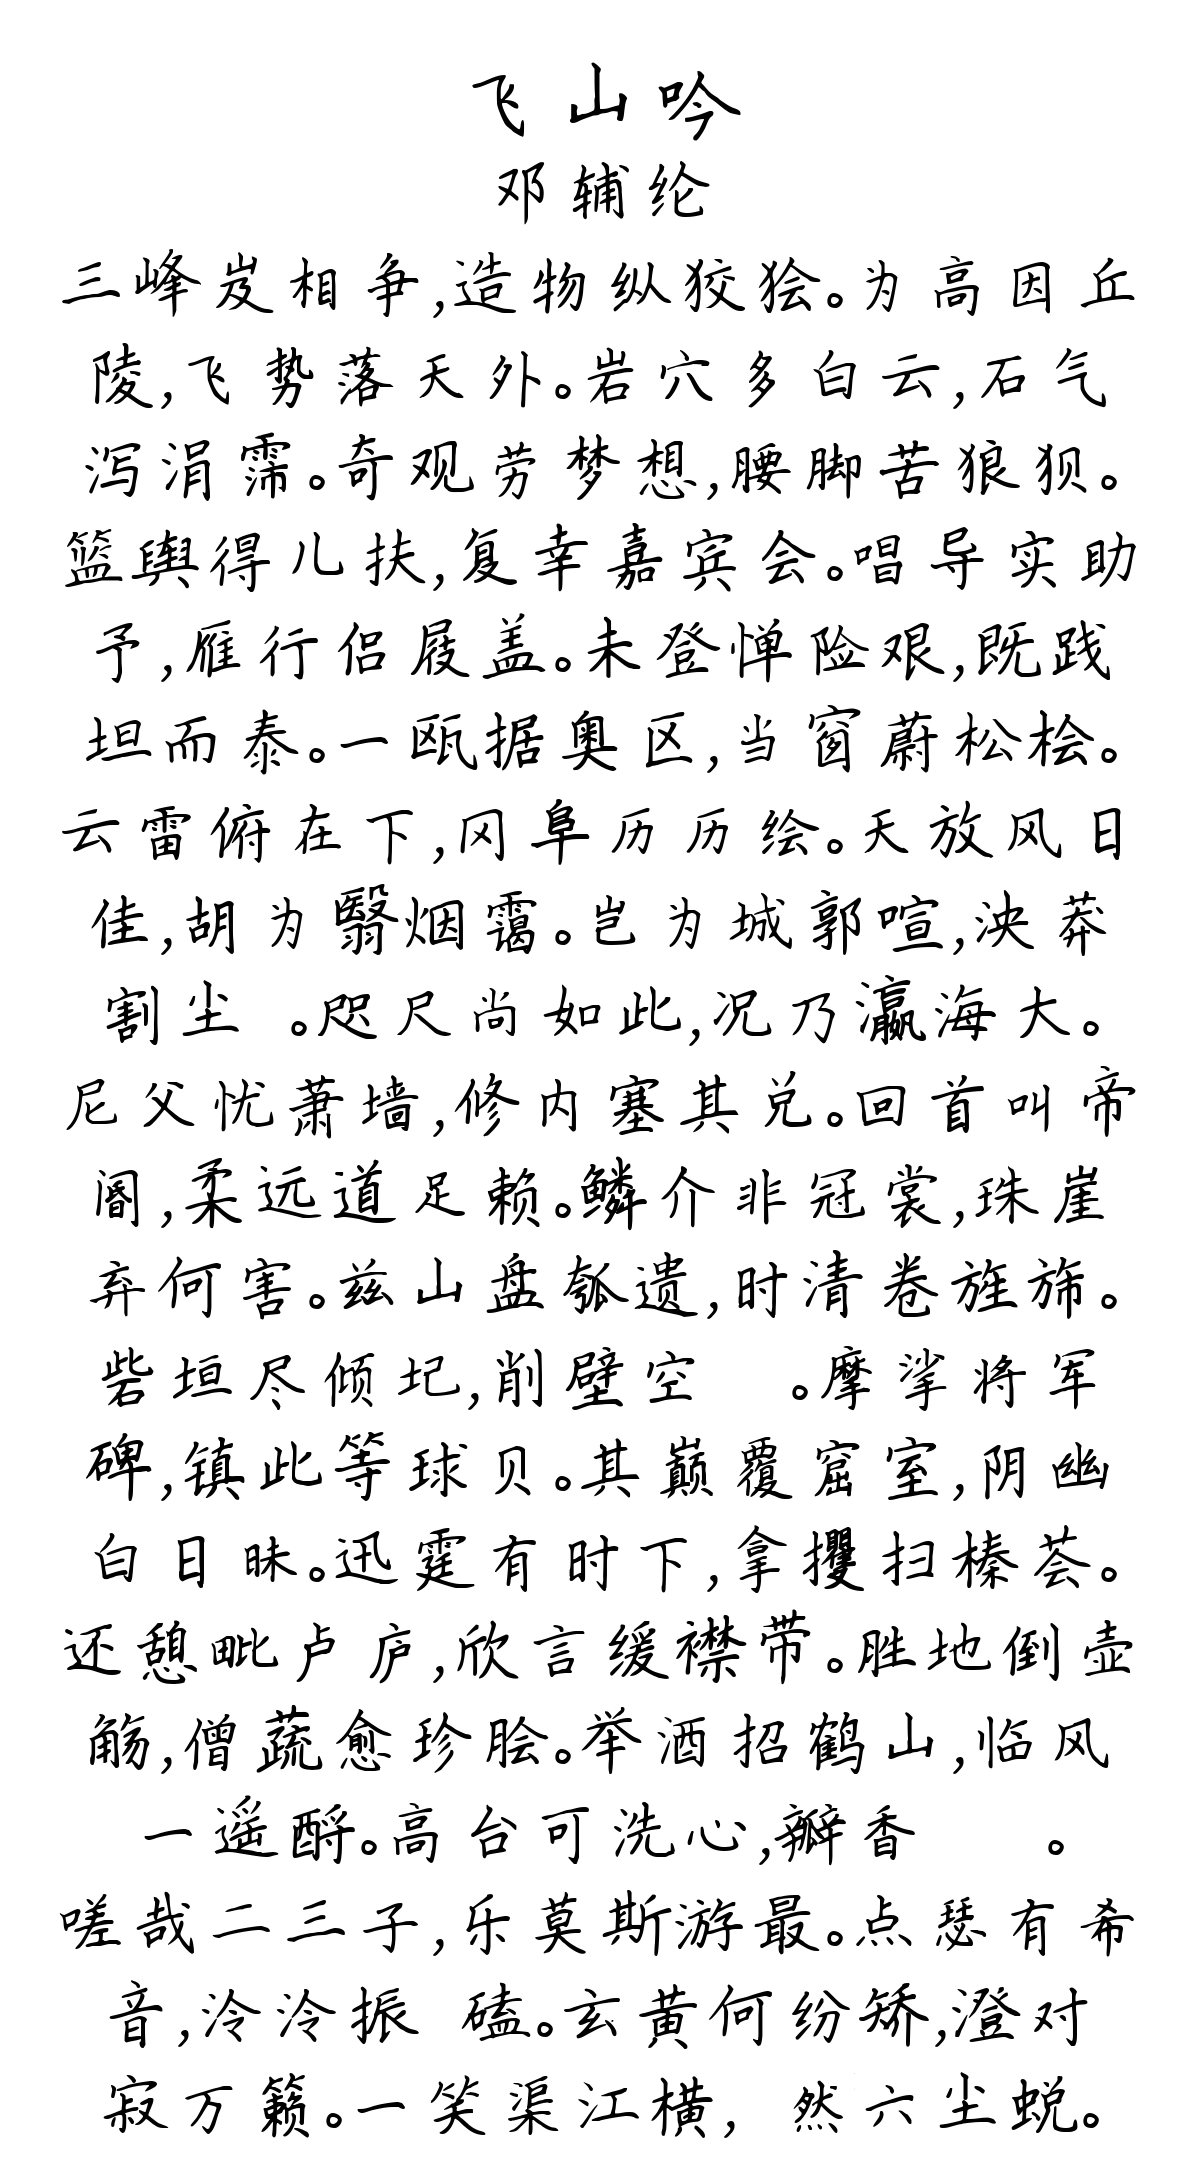 飞山吟
邓辅纶
三峰岌相争,造物纵狡狯。为高因丘
陵,飞势落天外。岩穴多白云,石气
泻涓霈。奇观劳梦想,腰脚苦狼狈。
篮舆得儿扶,复幸嘉宾会。唱导实助
予,雁行侣屐盖。未登惮险艰,既践
坦而泰。一瓯据奥区,当窗蔚松桧。
云雷俯在下,冈阜历历绘。天放风日
佳,胡为翳烟霭。岂为城郭喧,泱莽
割尘 。咫尺尚如此,况乃瀛海大。
尼父忧萧墙,修内塞其兑。回首叫帝
阍,柔远道足赖。鳞介非冠裳,珠崖
弃何害。兹山盘瓠遗,时清卷旌旆。
砦垣尽倾圮,削壁空 。摩挲将军
碑,镇此等球贝。其巅覆窟室,阴幽
白日昧。迅霆有时下,拿攫扫榛荟。
还憩毗卢庐,欣言缓襟带。胜地倒壶
觞,僧蔬愈珍脍。举酒招鹤山,临风
一遥酹。高台可洗心,瓣香 。
嗟哉二三子,乐莫斯游最。点瑟有希
音,泠泠振 磕。玄黄何纷矫,澄对
寂万籁。一笑渠江横, 然六尘蜕。